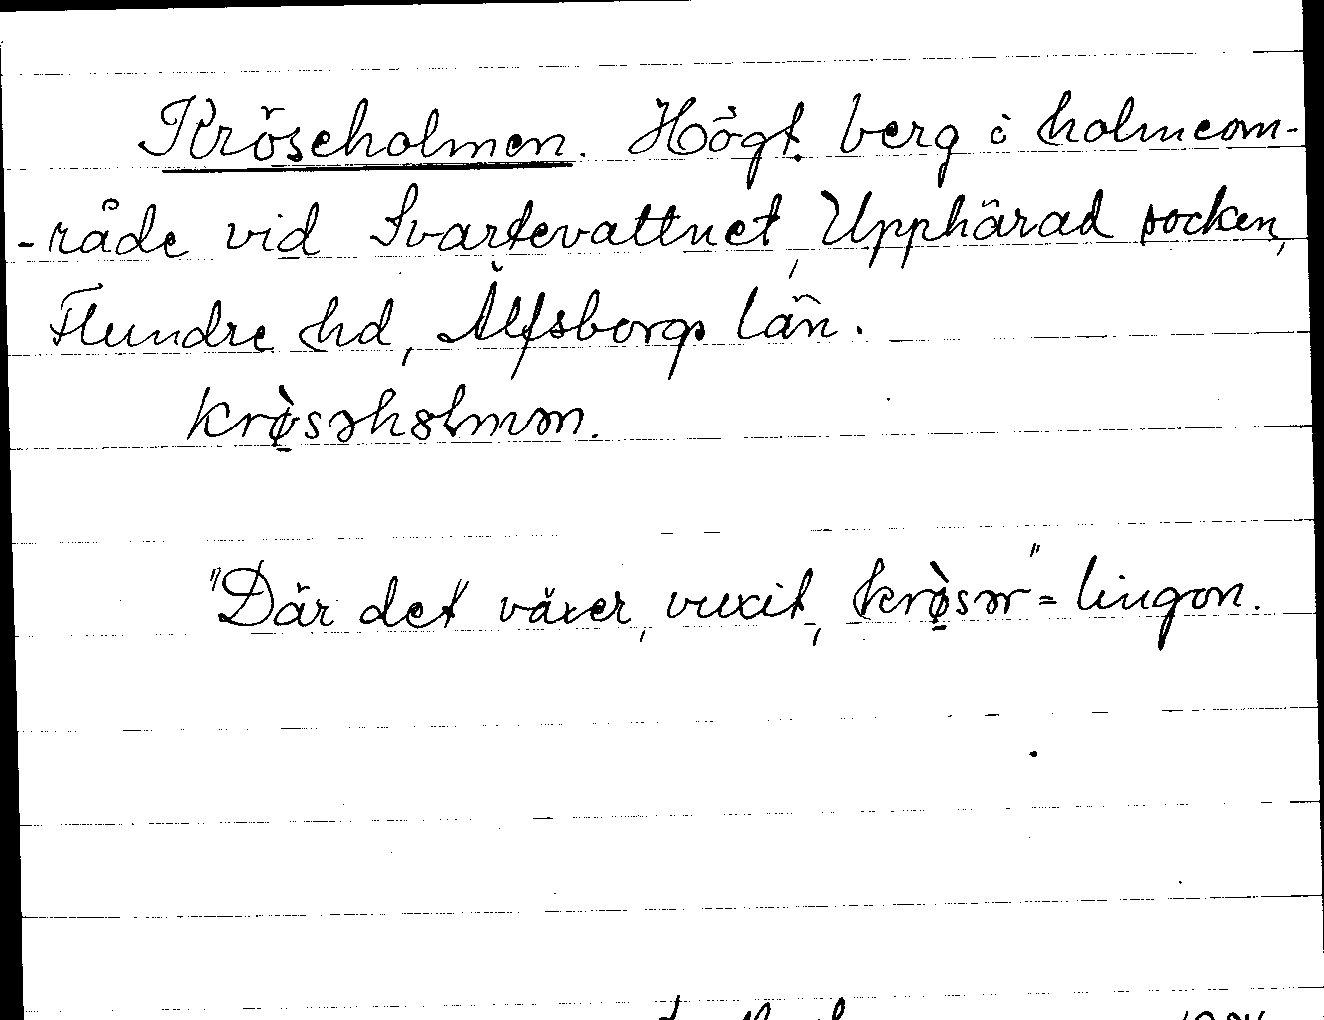 Kröseholmen. Högt berg i holmeom-
-råde vid Svartevattnet, Upphärad socken,
Flundre hd, Älfsborgs län.
krø̀səhȯlmən.
"Där det växer, vuxit, krø̀sər" = lingon.